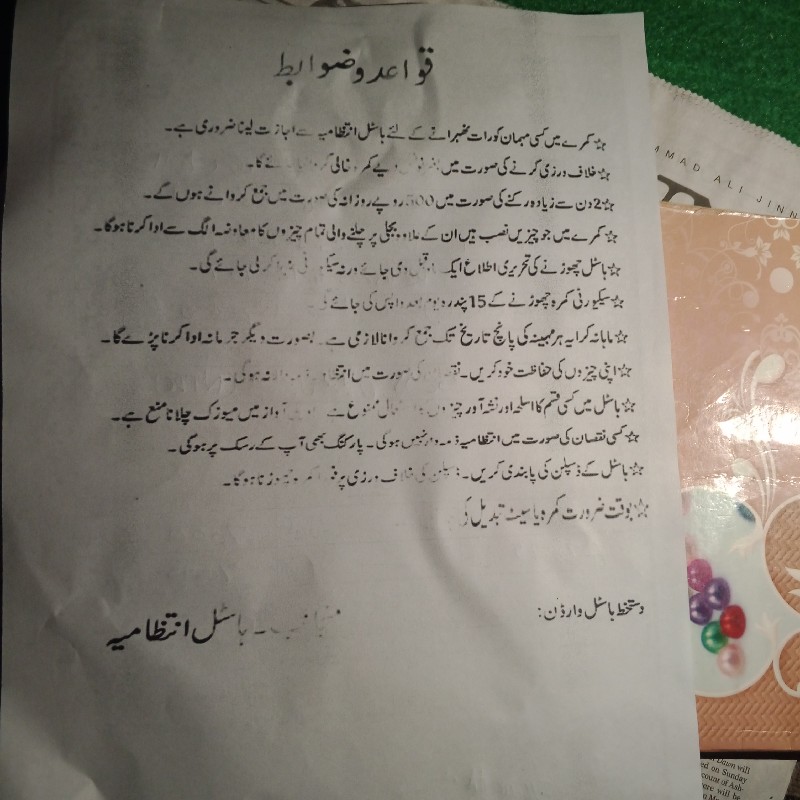 قواعد و ضوابط
☆ کمرے میں کسی مہمان کو رات ٹھہرانے کے لئے ہاسٹل انتظامیہ سے اجازت لینا ضروری ہے۔
☆ خلاف ورزی کرنے کی صورت میں
☆ 2 دن سے زیادہ رکنے کی صورت میں 500 روپے روزانہ کی صورت میں جمع کروانے ہوں گے۔
☆ کمرے میں جو چیزیں نصب ہیں ان کے علاوہ بجلی پر چلنے والی تمام چیزوں کا معاوضہ الگ سے ادا کرنا ہوگا۔
☆ ہاسٹل چھوڑنے کی تحریری اطلاع ایک قبل دی جائے ورنہ سیکیورٹی کر لی جائے گی۔
☆ سیکیورٹی کمرہ چھوڑنے کے 15 پندرہ یوم بعد واپس کی جائے گی۔
☆ ماہانہ کرایہ ہر مہینہ کی پانچ تاریخ تک جمع کروانا لازمی ہے۔ بصورت دیگر جرمانہ ادا کرنا پڑے گا۔
☆ اپنی چیزوں کی حفاظت خود کریں۔ نقصان کی صورت میں انتظامیہ نہ ہوگی۔
☆ ہاسٹل میں کسی قسم کا اسلحہ اور نشہ آور چیزوں کا استعمال ممنوع ہے۔ آواز میں میوزک چلانا منع ہے۔
☆ کسی نقصان کی صورت میں انتظامیہ ذمہ دار نہیں ہوگی۔ پارکنگ بھی آپ کے رسک پر ہوگی۔
☆ ہاسٹل کے ڈسپلن کی پابندی کریں۔ ڈسپلن کی خلاف ورزی پر ہوگا۔
☆ بوقت ضرورت کمرہ یا سیٹ تبدیل کی
دستخط ہاسٹل وارڈن:
منجانب۔ ہاسٹل انتظامیہ
MMAD ALI JINN
Dawn will
ed on Sunday
ccount of Ash-
ere will be